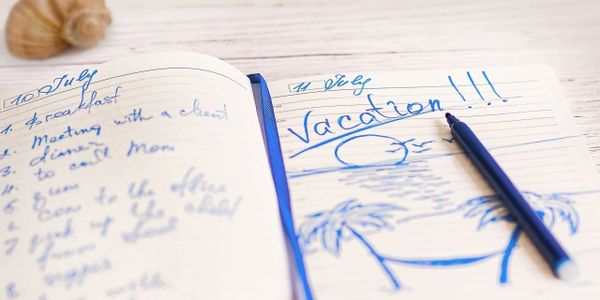 10 July
1. Breakfast
2. Meeting with a client
3. dinner
4. to call Mom
5
6. to the office
7 pick up the child
from
8
11 July
Vacation !!!